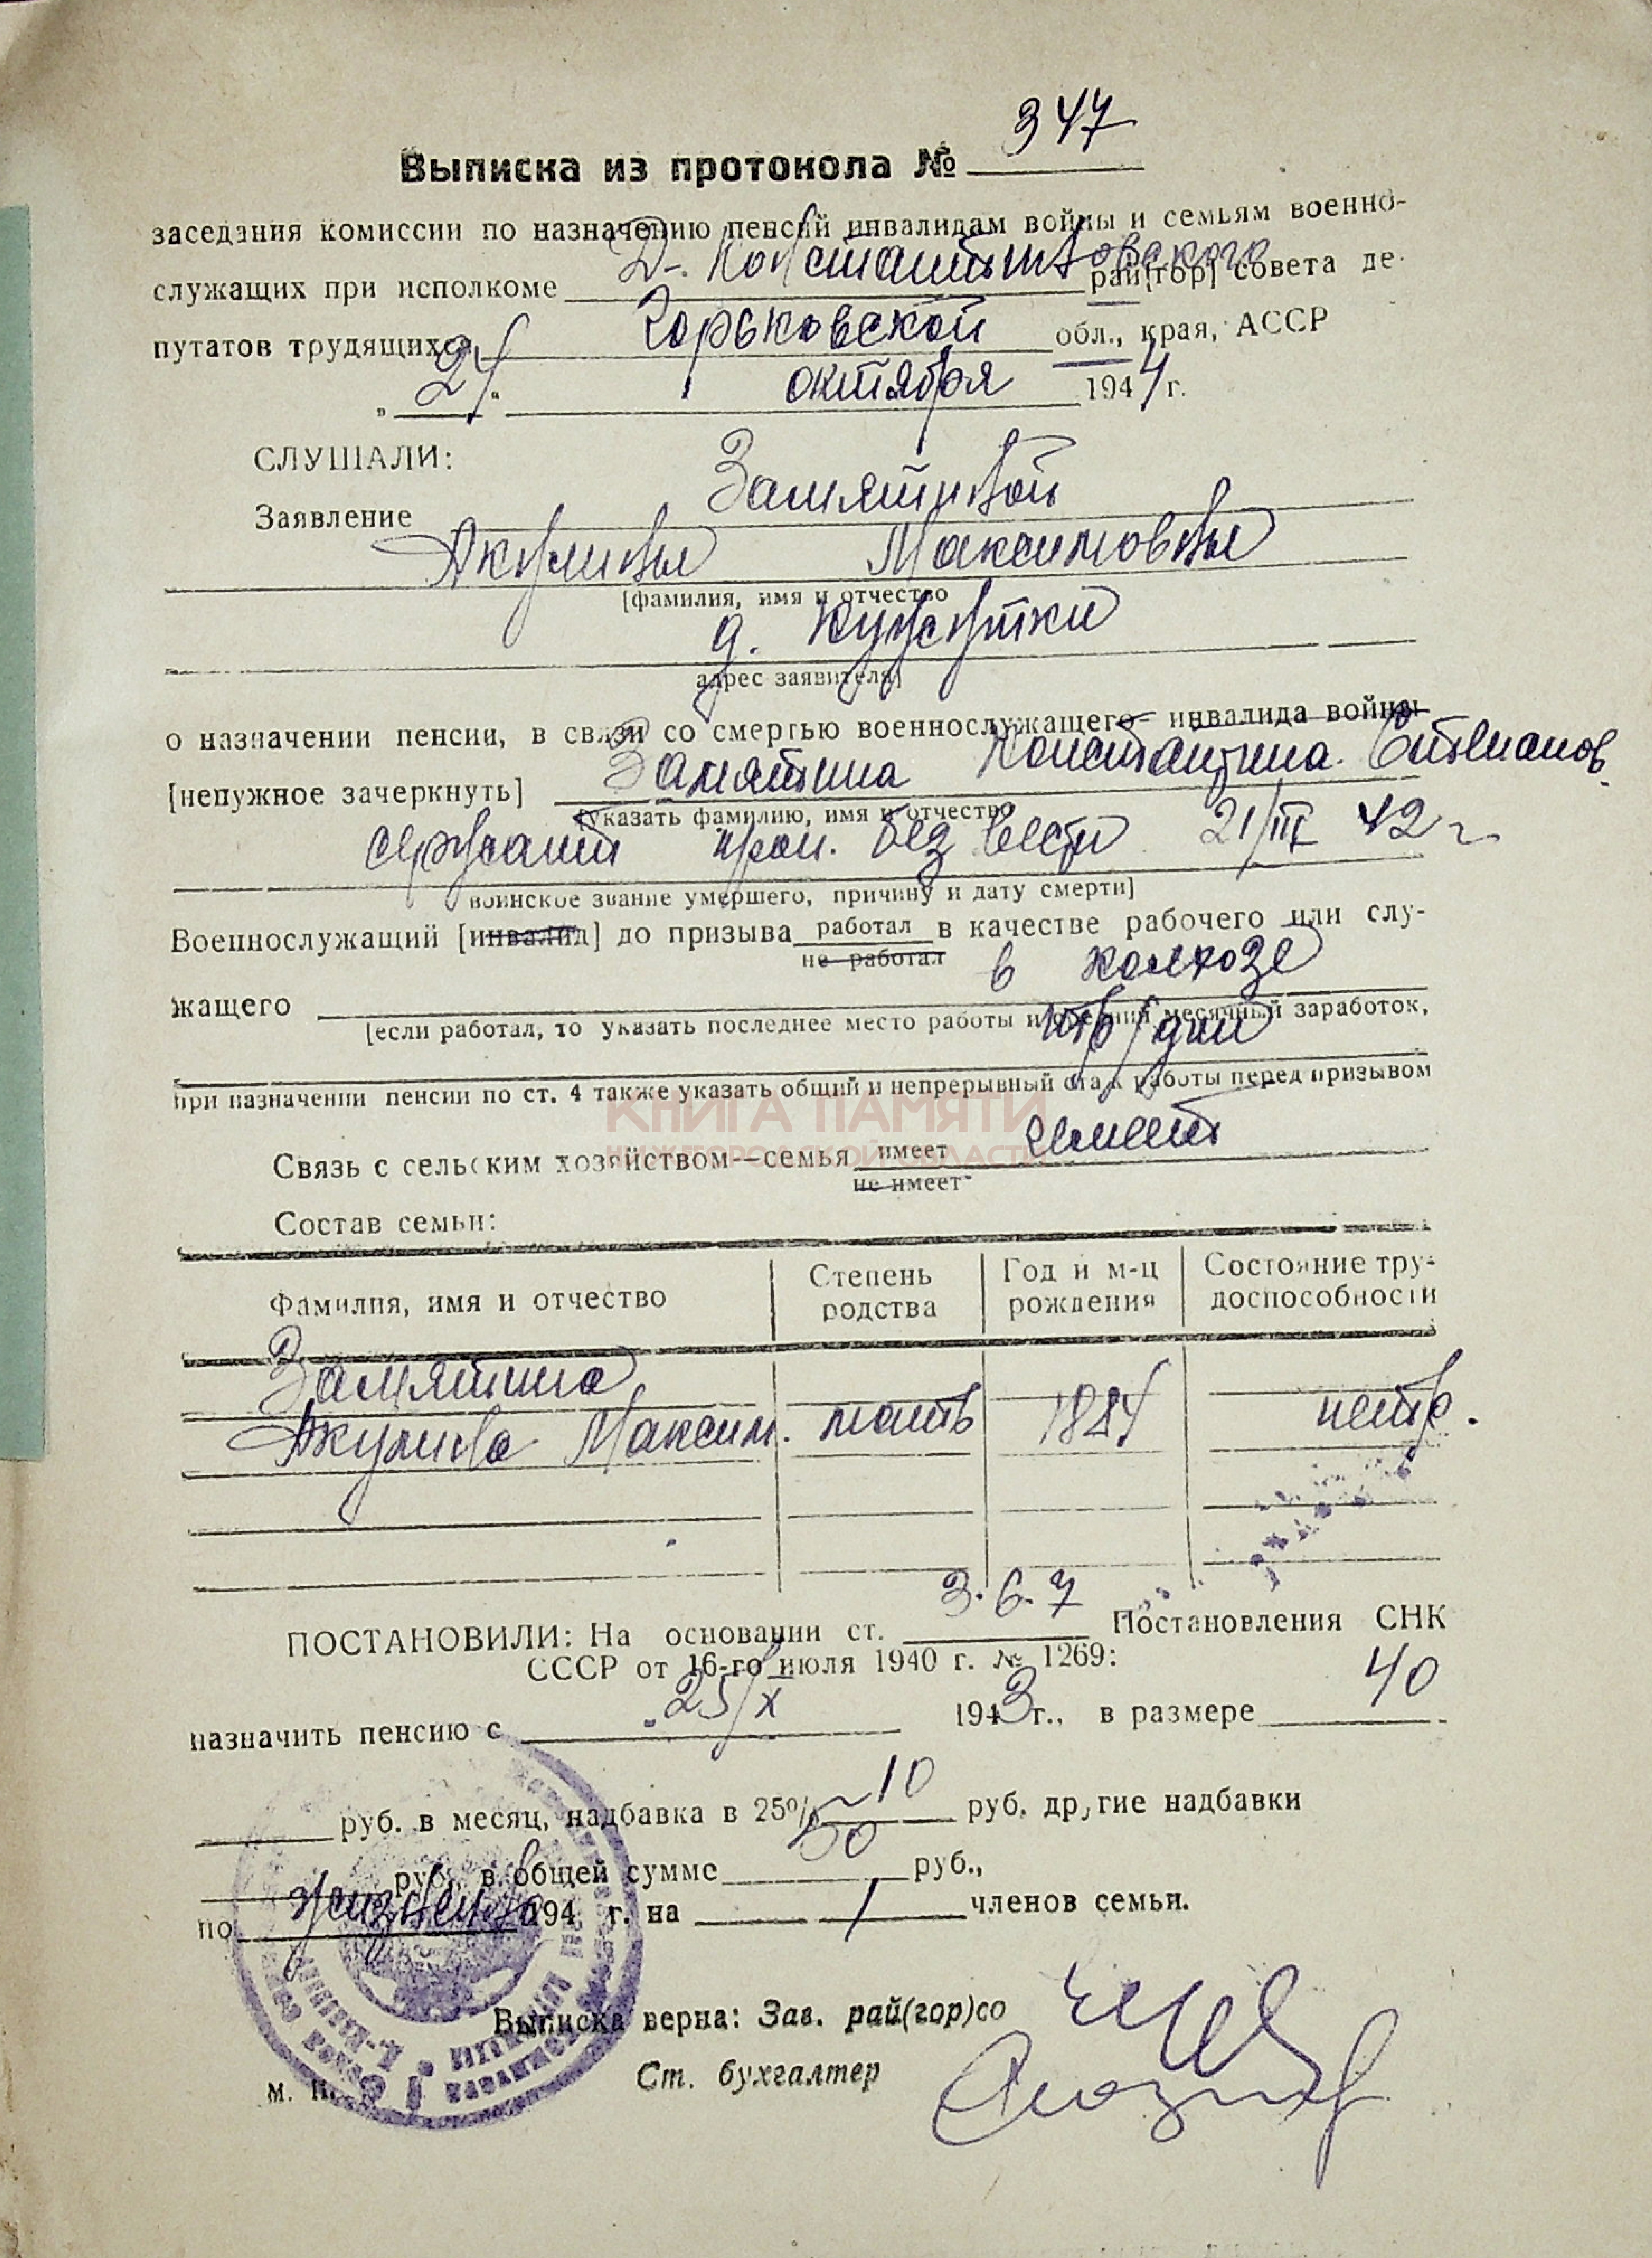 347
Выписка из протокола №
заседания комиссии по назначению пенсий инвалидам войны и семьям военно-
служащих при исполкоме Д-Константиновского рай[гор] совета де-
путатов трудящихся Горьковской обл., края, АССР
„ 24 “ октября 1944 г.
СЛУШАЛИ:
Заявление Замятиной
Акулины Максимовны
[фамилия, имя и отчество
д.
адрес заявителя]
о назначении пенсии, в связи со смертью военнослужащего- инвалида войны
[ненужное зачеркнуть] Замятина Константина Степанов.
[указать фамилию, имя и отчество
сержант проп. без вести 21/III 42 г
воинское звание умершего, причину и дату смерти]
Военнослужащий [инвалид] до призыва работал в качестве рабочего или слу-
не работал
жащего в колхозе
[если работал, то указать последнее место работы и средний месячный заработок,
тр/дни
при назначении пенсии по ст. 4 также указать общий и непрерывный стаж работы перед призывом
КНИГА ПАМЯТИ
НИЖЕГОРОДСКОЙ ОБЛАСТИ
Связь с сельским хозяйством—семья имеет имеет
не имеет
Состав семьи:
Фамилия, имя и отчество Степень родства Год и м-ц рождения Состояние тру-доспособности
Замятина
Акулина Максим. мать 1884 нетр.
ПОСТАНОВИЛИ: На основании ст. 3. 6. 7 Постановления СНК
СССР от 16-го июля 1940 г. № 1269:
назначить пенсию с 25/X 1943 г., в размере 40
руб. в месяц, надбавка в 25% 10 руб. другие надбавки
руб. в общей сумме 50 руб.,
по пожизненно 194 г. на 1 членов семьи.
Выписка верна: Зав. рай(гор)со
Ст. бухгалтер
м. п.